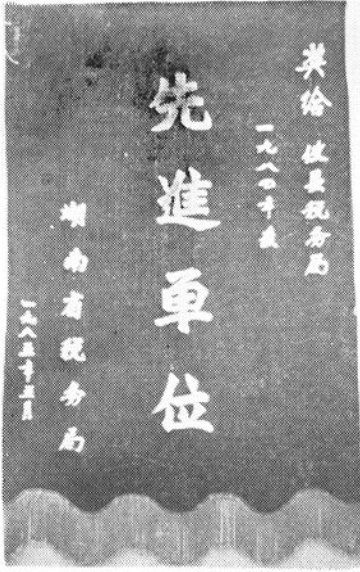 奖给 攸县税务局
一九八四年度
先進单位
湖南省税务局
一九八五年五月